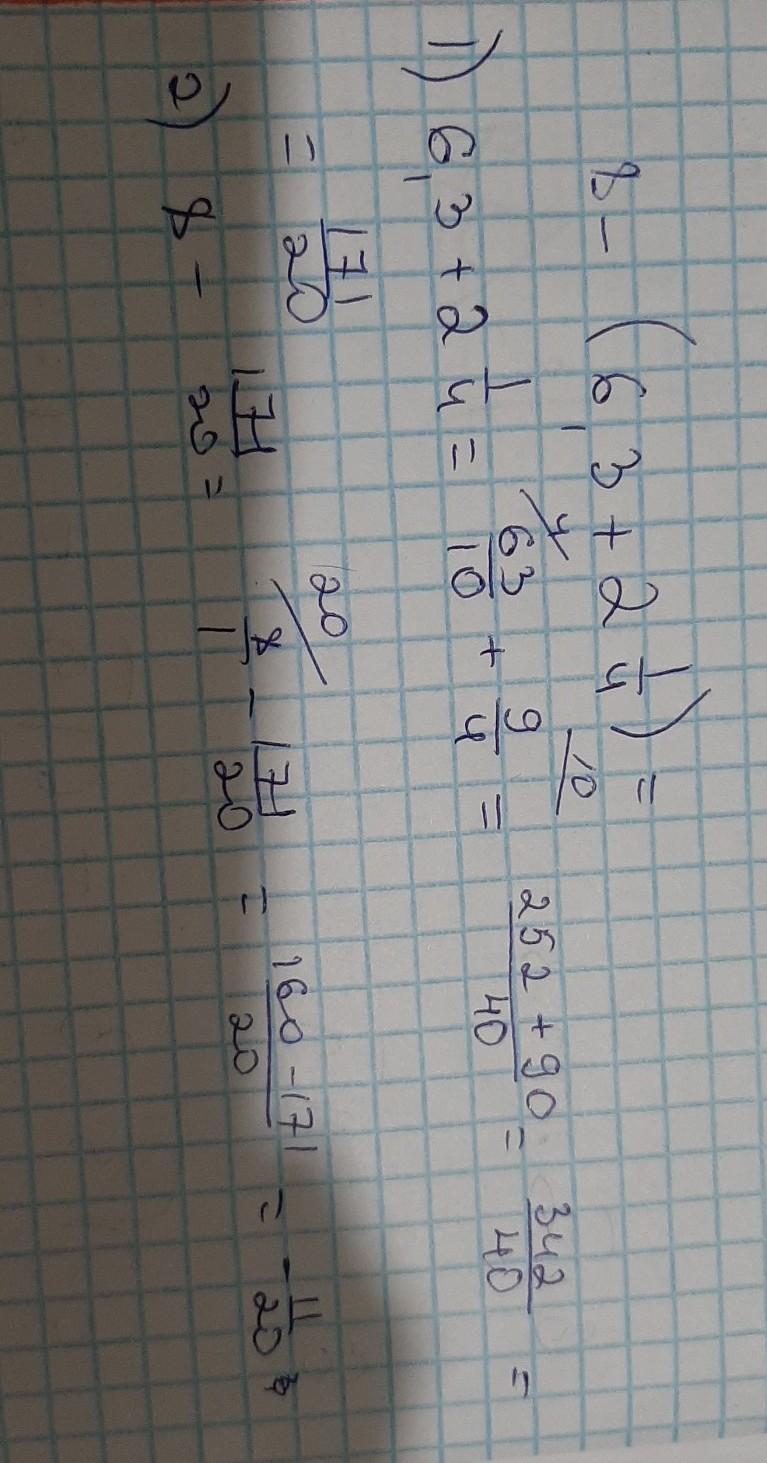 8 - (6,3 + 2 1/4) =
1) 6,3 + 2 1/4 = 63/10 /4 + 9/4 /10 = 252 + 90/40 = 342/40 =
= 171/20
2) 8 - 171/20 = 8/1 /20 - 171/20 = 160 - 171/20 = - 11/20